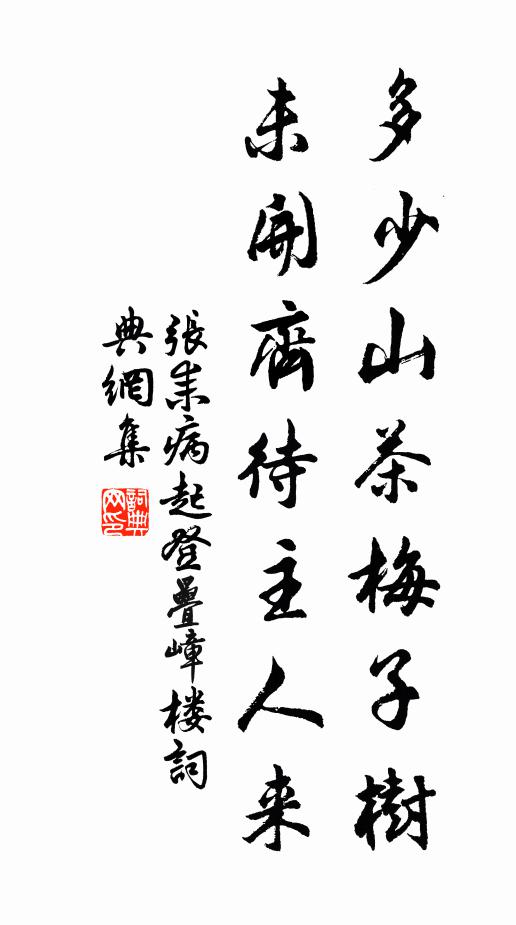 多少山茶梅子樹
未開齊待主人来
張耒病起登疊嶂楼詞
典網集
詞典网印